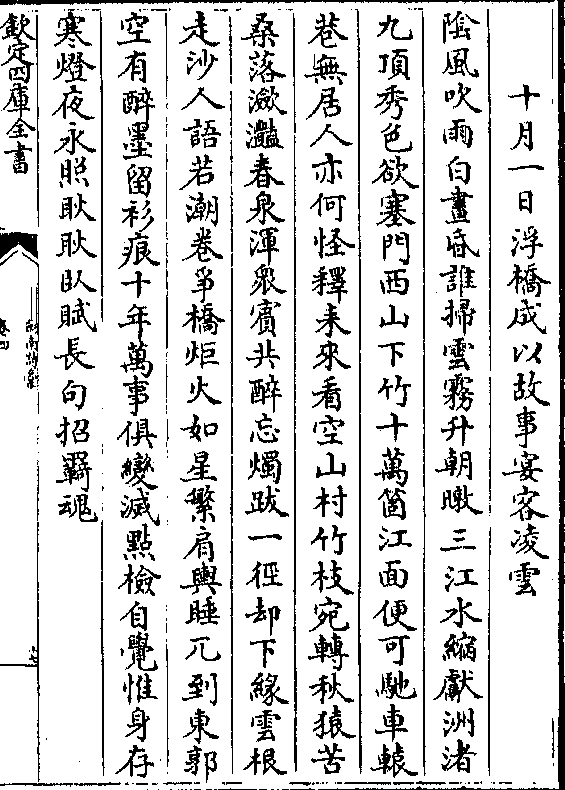 十月一日浮橋成以故事宴客凌雲
陰風吹雨白晝昏誰掃雲霧升朝暾三江水縮獻洲渚
九頂秀色欲塞門西山下竹十萬箇江面便可馳車轅
巷無居人亦何怪釋耒來看空山村竹枝宛轉秋猿苦
桑落瀲灩春泉渾衆賓共醉忘燭跋一徑却下緣雲根
走沙人語若潮卷爭橋炬火如星繁肩輿睡兀到東郭
空有醉墨留衫痕十年萬事俱變滅點檢自覺惟身存
寒燈夜永照耿耿臥賦長句招羇魂
欽定四庫全書